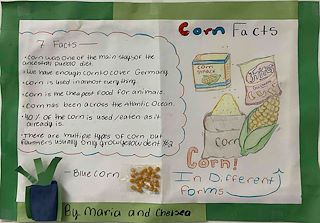 7 Facts
• Corn was one of the main stay of the
ancestral pueblo diet.
• We have enough corn to cover Germany
• Corn is used in almost every thing.
• Corn is the cheapest food for animals.
• Corn has been across the Atlantic Ocean.
• 40% of the corn is used/eaten as it
already is.
• There are multiple types of corn but
farmers usually only grow yellow dent
- Blue corn
By: Maria and Chelsea
Corn Facts
Corn
Corn
Corn!
In Different
forms